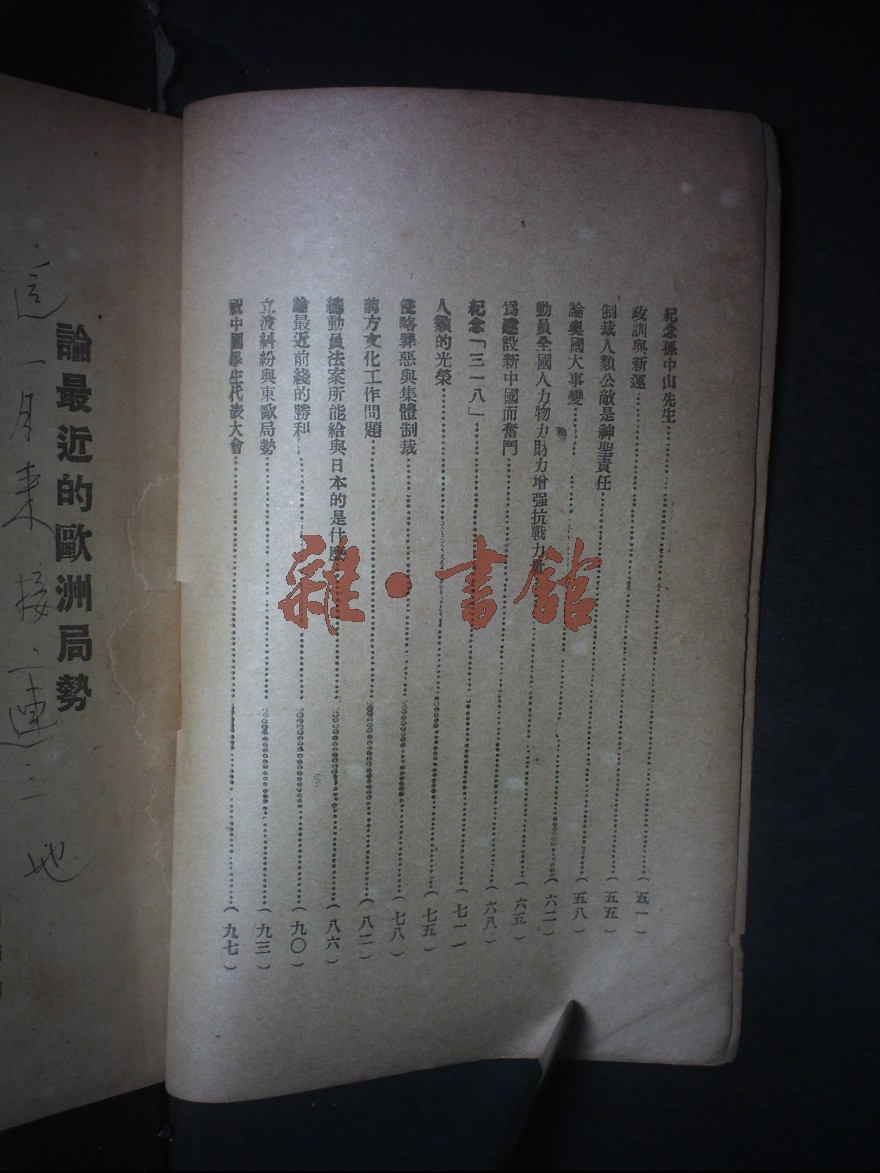 紀念孫中山先生……(五一)
政訓與新運……(五五)
制裁人類公敵是神聖責任……(五八)
論奧國大事變……(六二)
動員全國人力物力財力增强抗戰力量……(六五)
爲建設新中國而奮鬥……(六八)
紀念「三一八」……(七一)
人類的光榮……(七五)
侵略罪惡與集體制裁……(七八)
前方文化工作問題……(八二)
總動員法案所能給與日本的是什麽……(八六)
論最近前綫的勝利……(九〇)
立波糾紛與東歐局勢……(九三)
祝中國學生代表大會……(九七)
雜·書館
論最近的歐洲局勢
這一月来接二連三地